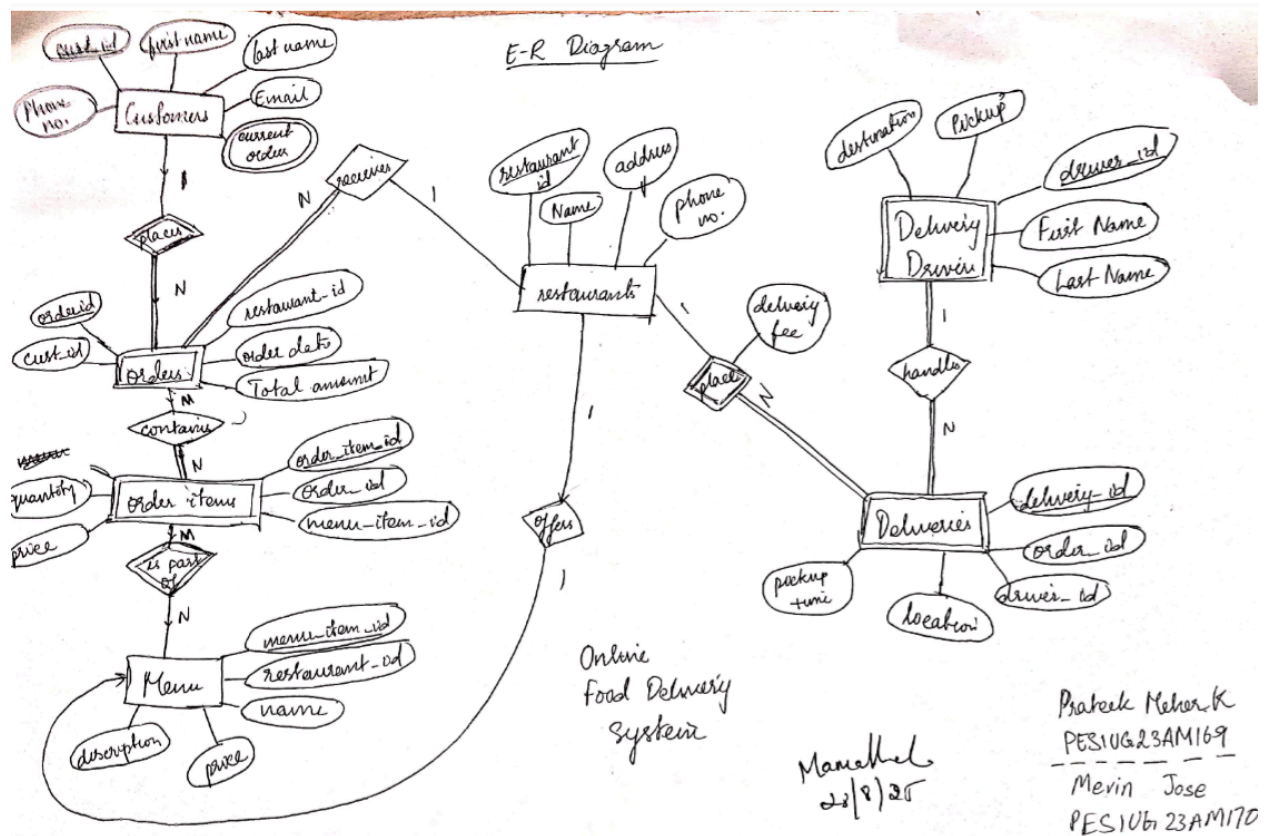 E-R Diagram
cust_id
first name
last name
Phone
no.
Customers
Email
current
order
1
places
N
recieves
N
1
order id
cust_id
orders
restaurant_id
order date
Total amount
M
contains
N
quantity
price
order items
order_item_id
order_id
menu_item_id
M
is part
of
N
Menu
menu_item_id
restaurant_id
name
price
restaurant
id
Name
address
phone
no.
restaurants
1
offers
1
1
place
delivery
fee
N
destination
Pickup
driver_id
First Name
Last Name
Delivery
1
handles
N
Deliveries
delivery_id
order_id
driver_id
location
pickup
Online
Food Delivery
System
23/8/25
Prateek Meher.K
PES1UG23AM169
Mevin Jose
PES1UG23AM170